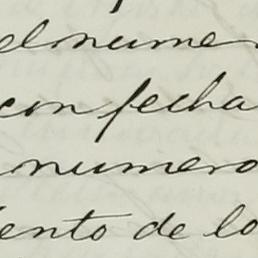 el nume
con fecha
numero
ento de lo